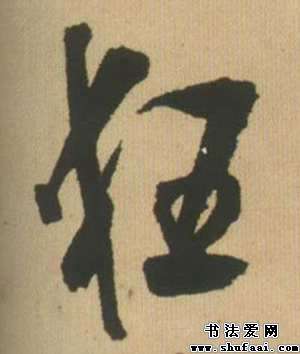 狂
书法爱网
www.shufaai.com